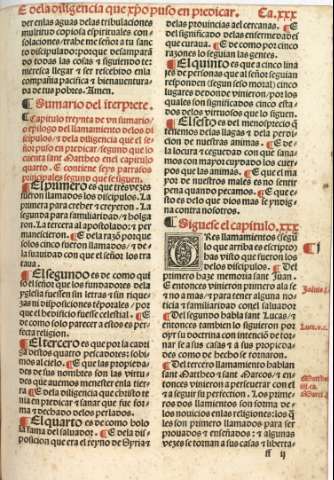 E dela diligencia que xp̃o puso en predicar. Ca.xxx
der enlas aguas delas tribulaciones
multitud copiosa espirituales con
solaciones: trabe me señor a tu sanc
to discipulado: porque desampara
do todas las cosas y siguiendo te:
merezca llegar e ser rescebido enla
compañia pacifica e bienaventura-
da de tus pobres. Amen.
Sumario del interprete.
Capitulo treynta de un sumario
o epilogo del llamamiento delos di
scipulos: e dela diligencia que el se
ñor puso en predicar: segun que lo
cuenta sant Mattheo en el capitulo
quarto. E contiene seys parrafos
principales segun que se siguen.
El primero es que tres vezes
fueron llamados los discipulos. La
primera para creher e creyeron. La
segunda para familiaridad: e bolga
ron. La tercera al apostolado: e per
manescieron. E dela razõ porque
solos cinco fueron llamados: e de
la suavidad con que el señor los tra
tava.
El segundo es de como qui
so el señor que los fundadores dela
yglesia fuessen sin letras e sin rique
zas ni disposiciones corporales: por
que el hedificio fuesse celestial. E
de como solo parecer a estos es per
fecta religion.
El tercero es que por la cadi
ga destos quatro pescadores: sobi
mos al cielo. E que las propieda
des de sus nombres son las virtu-
des que avemos menester enla tier
ra. E dela diligencia que christo te
nia en predicar e sanar que fue for
ma e dechado delos perlados.
El quarto es de como bolo
la fama del salvador. E dela di-
sposicion que era el reyno de Syria e
de las provincias a el cercanas. E
del significado delas enfermedades
que curava. E de como por cinco
razones lo seguian las gentes.
El quinto es que a cinco lina
jes de personas que al señor seguian
responden (segun seso moral) cinco
lugares de donde vinieron: por los
quales son significados cinco esta-
dos de virtuosos que lo siguen.
El sesto es del menosprecio q̃
tenemos delas llagas e dela perdi-
cion de nuestras animas. E de-
la locura e ceguedad con que sana-
mos con mayor cuydado los cuer-
pos que las animas. E que el ma
yor de nuestros males es no sentir
pena quando pecamos. E que e-
sto es delo que dios mas se yndig
na contra nosotros.
Siguese el capitulo.xxx
TRes llamamientos (segũ
que arriba es escripto)
bas visto que fueron los
delos discipulos. Del
primero haze memoria sant Juan.
E entonces vinieron primero ala se
e no a mas: e para tener alguna no-
ticia e familiaridad conel salvador
Del segundo habla sant Lucas: e
entonces tambien lo siguieron por
oyr su doctrina con intencion de tor
nar se a sus casas e a sus propieda
des como de hecho se tornaron.
Del tercero llamamiento hablan
sant Mattheo e sant Marcos: e en-
tonces vinieron a perseverar con el
e a seguir su perfection. Los prime
ros dos llamientos son forma de-
los novicios enlas religiones: los q̃
les son primero llamados para ser
provados e enseñados: e algunas
vezes se tornan a sus casas e liberta-
Luce.v.c.
ff ij